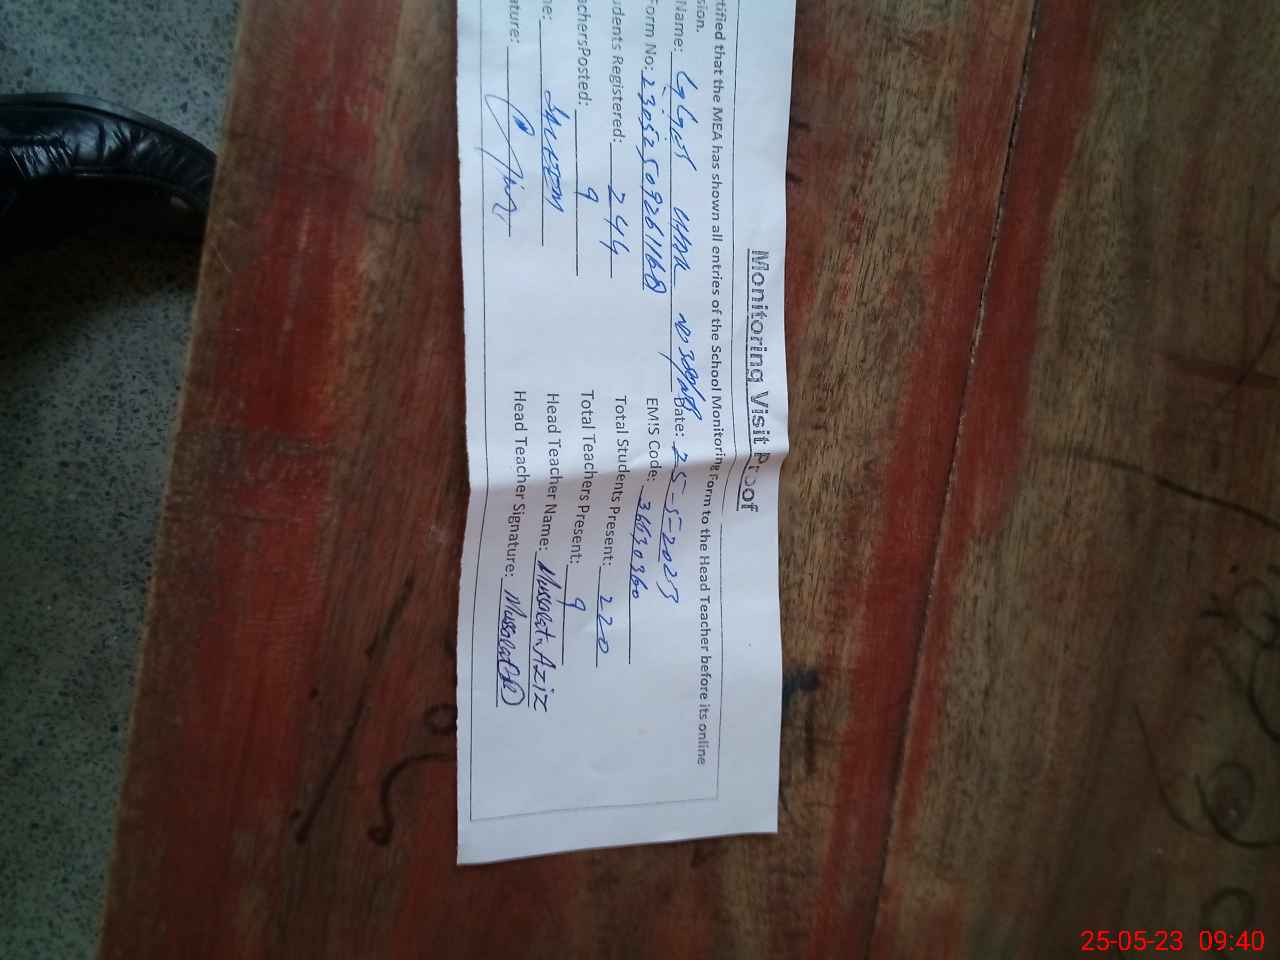 Monitoring Visit Proof
tified that the MEA has shown all entries of the School Monitoring Form to the Head Teacher before its online
sion.
Name: Date: 25-5-2023
Form No: EMIS Code: 36630360
dents Registered: 244 Total Students Present: 220
achersPosted: 9 Total Teachers Present: 9
ne: SALEEM Head Teacher Name: Mussalat Aziz
ature: Head Teacher Signature: Mussalat
25-05-23 09:40